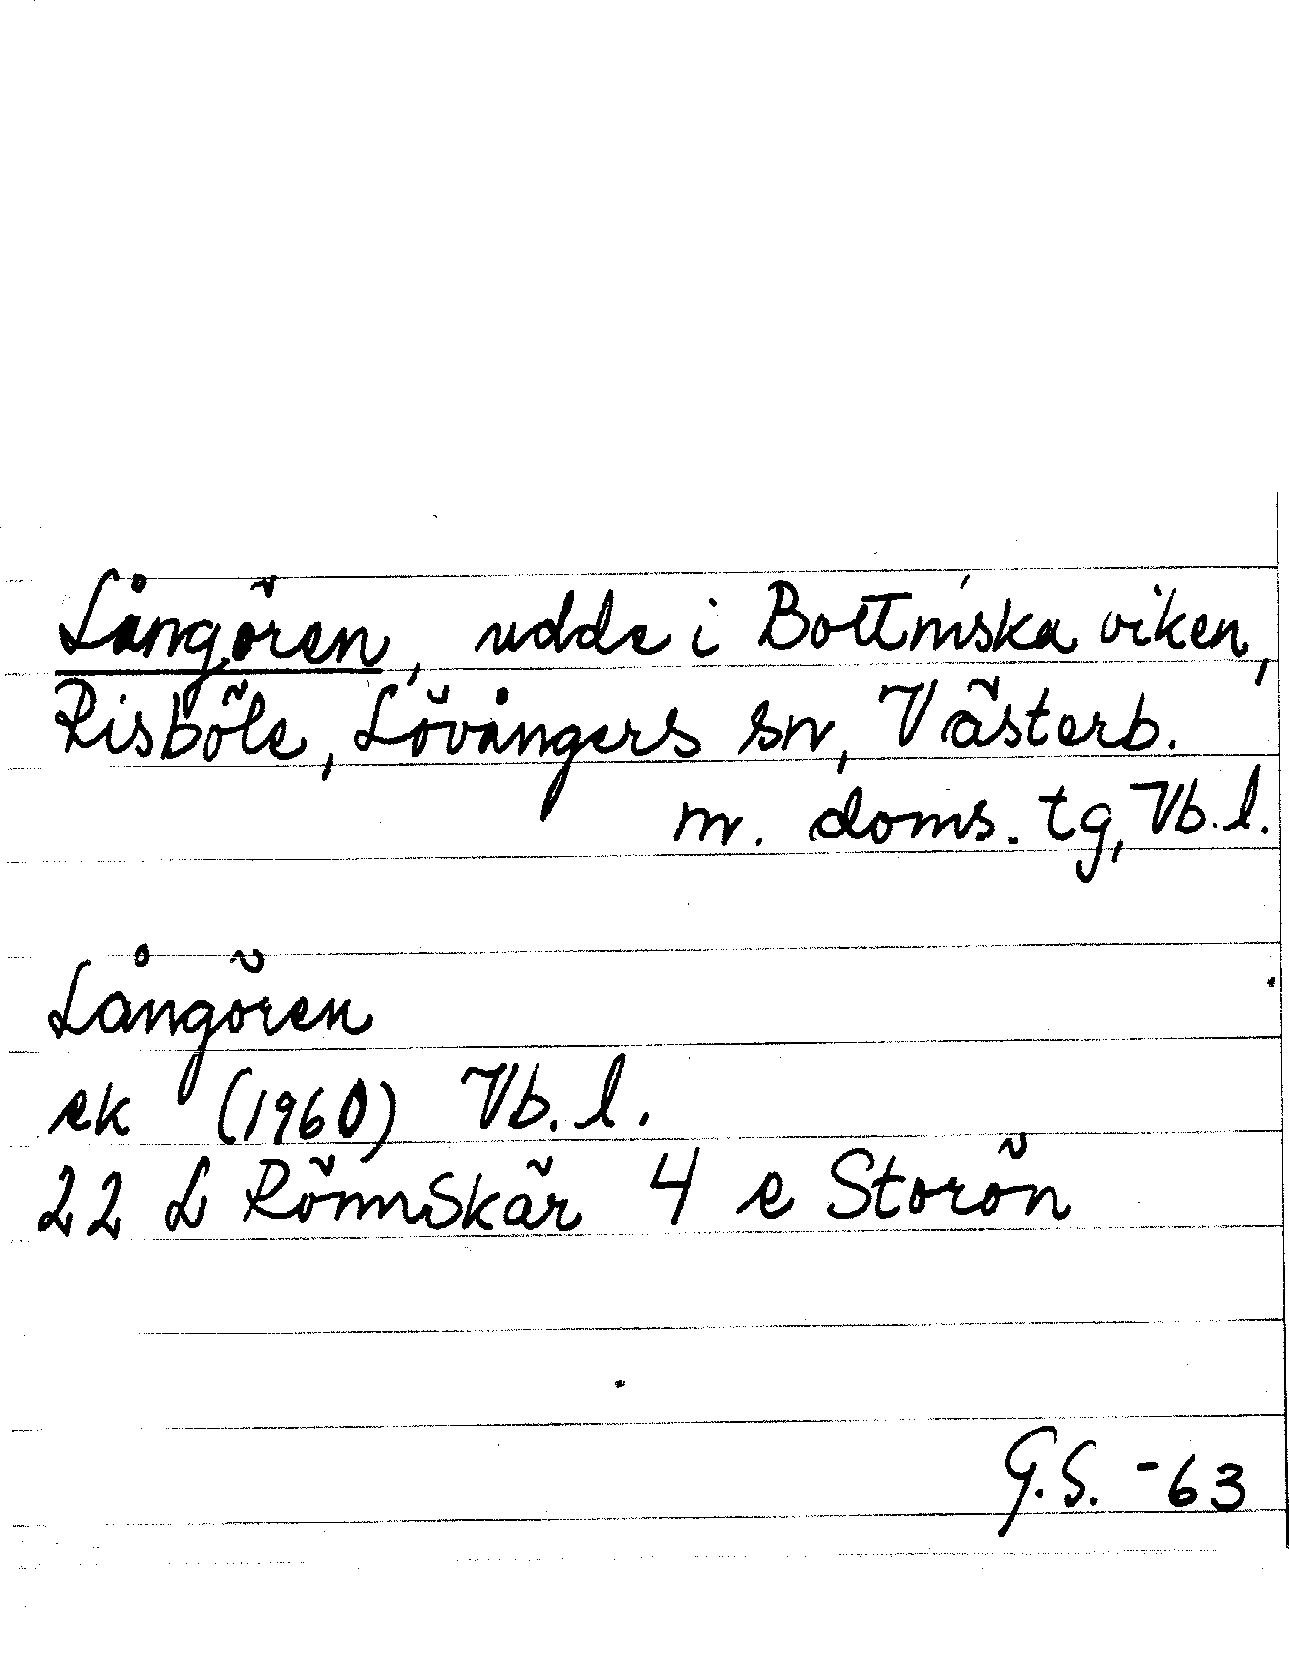 Långören, udde i Bottniska viken,
Risböle, Lövångers sn, Västerb.
n. doms. tg, Vb. l.
Långören
ek (1960) Vb. l.
22 L Rönnskär 4 e Storön
G.S. -63